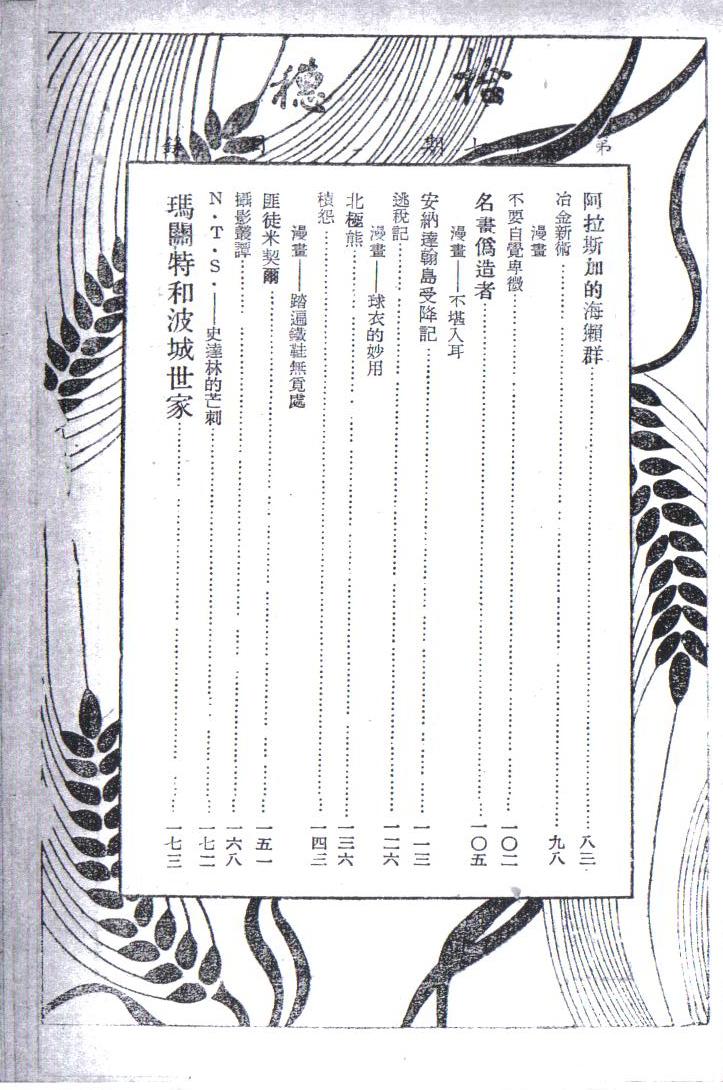 拾穗
第 十七期 目錄
阿拉斯加的海獺群……八二
冶金新術……九八
漫畫
不要自覺卑微……一〇二
名畫僞造者……一〇五
漫畫——不堪入耳
安納達翰島受降記……一一三
逃稅記……一二六
漫畫——球衣的妙用
北極熊……一三六
積怨……一四三
漫畫——踏遍鐵鞋無覓處
匪徒米契爾……一五一
攝影叢譚……一六八
N·T·S·——史達林的芒刺……一七二
瑪關特和波城世家……一七三